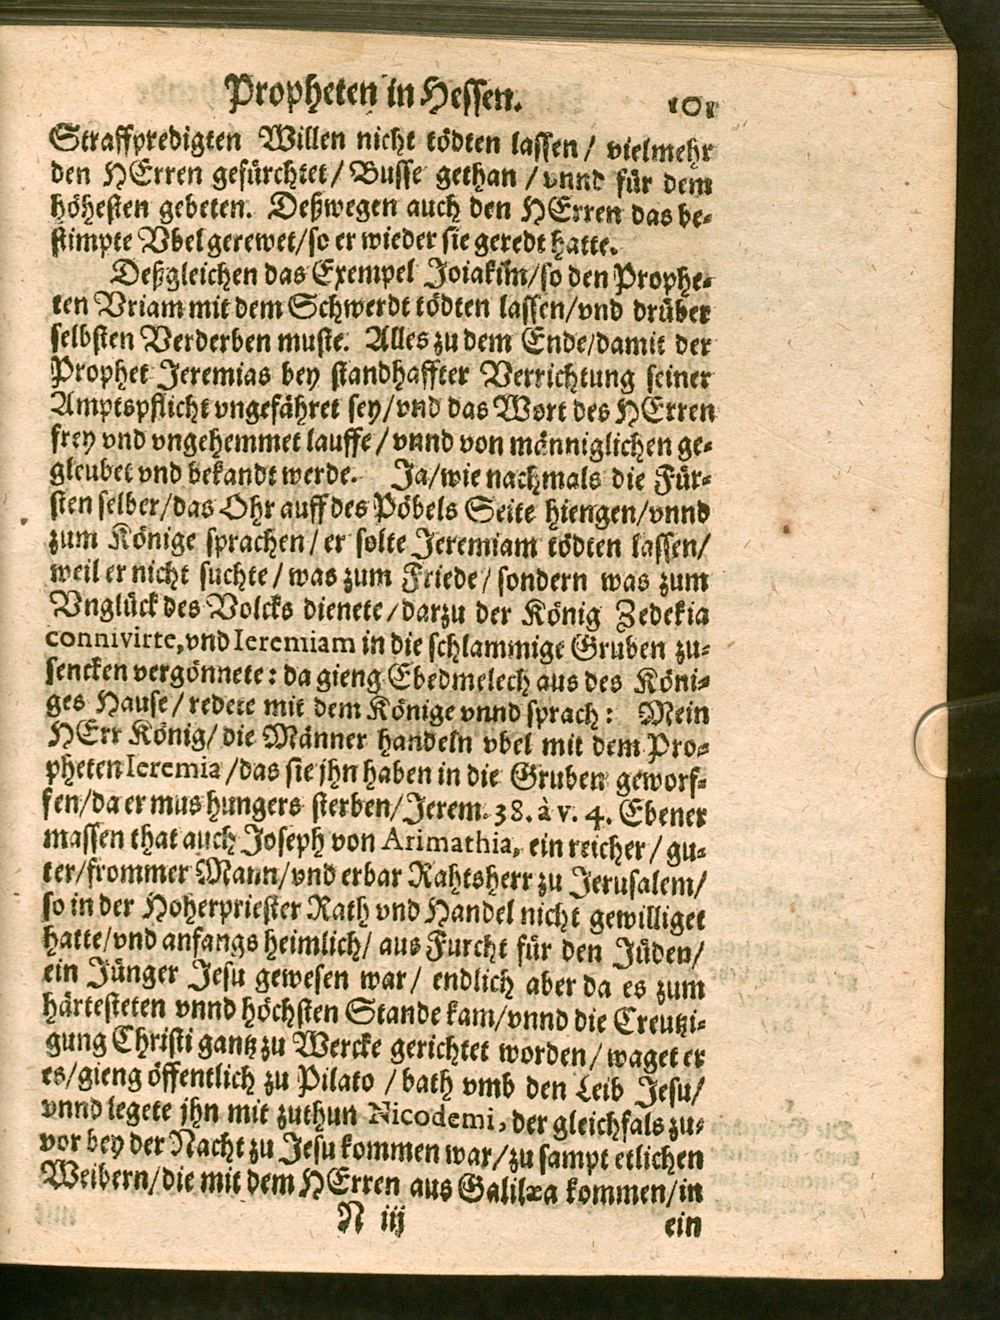 Propheten in Hessen. 101
Straffpredigten Willen nicht tödten lassen / vielmehr
den HErren gefürchtet / Busse gethan / vnnd für dem
höhesten gebeten. Deßwegen auch den HErren das be-
stimpte Vbel gerewet/so er wieder sie geredt hatte.
Deßgleichen das Exempel Joiakim/so den Prophe-
ten Vriam mit dem Schwerdt tödten lassen/vnd drüber
selbsten Verderben muste. Alles zu dem Ende/damit der
Prophet Jeremias bey standhaffter Verrichtung seiner
Amptspflicht vngefähret sey/vnd das Wort des HErren
frey vnd vngehemmet lauffe / vnnd von männiglichen ge-
gleubet vnd bekandt werde. Ja/wie nachmals die Für-
sten selber/das Ohr auff des Pöbels Seite hiengen/vnnd
zum Könige sprachen / er solte Jeremiam tödten lassen/
weil er nicht suchte / was zum Friede / sondern was zum
Vnglück des Volcks dienete / darzu der König Zedekia
connivirte, vnd Ieremiam in die schlammige Gruben zu-
sencken vergönnete: da gieng Ebedmelech aus des Köni-
ges Hause / redete mit dem Könige vnnd sprach: Mein
HErr König/ die Männer handeln vbel mit dem Pro-
pheten Ieremia /das sie jhn haben in die Gruben geworf-
fen/da er mus hungers sterben/Jerem. 38. à v. 4. Ebener
massen that auch Joseph von Arimathia, ein reicher / gu-
ter/frommer Mann/vnd erbar Rahtsherr zu Jerusalem/
so in der Hoherpriester Rath vnd Handel nicht gewilliget
hatte/vnd anfangs heimlich/ aus Furcht für den Jüden/
ein Jünger Jesu gewesen war / endlich aber da es zum
härtesteten vnnd höchsten Stande kam/vnnd die Creutzi-
gung Christi gantz zu Wercke gerichtet worden / waget er
es/gieng öffentlich zu Pilato / bath vmb den Leib Jesu/
vnnd legete jhn mit zuthun Nicodemi, der gleichfals zu-
vor bey der Nacht zu Jesu kommen war/zu sampt etlichen
Weibern/die mit dem HErren aus Galilæa kommen/in
N iij ein